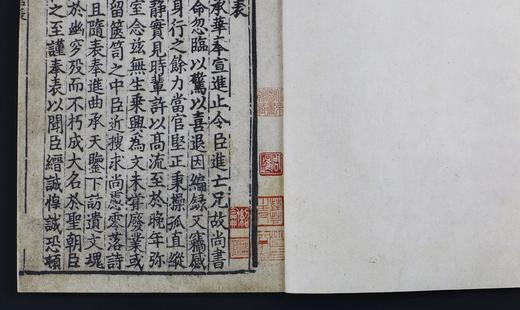 表
承華奉宣進止令臣進亡兄故尚書
命忽臨以驚以喜退因編錄又竊感
身行之餘力當官堅正秉操孤直縱
靜實見時輩許以高流至於晚年彌
室念茲無生乘興為文未嘗廢業或
留篋笥之中臣近搜求尚慮零落詩
且隨表奉進曲承天鑒下訪遺文魂
於幽穸歿而不朽成大名於聖朝臣
之至謹奉表以聞臣縉誠惶誠恐頓